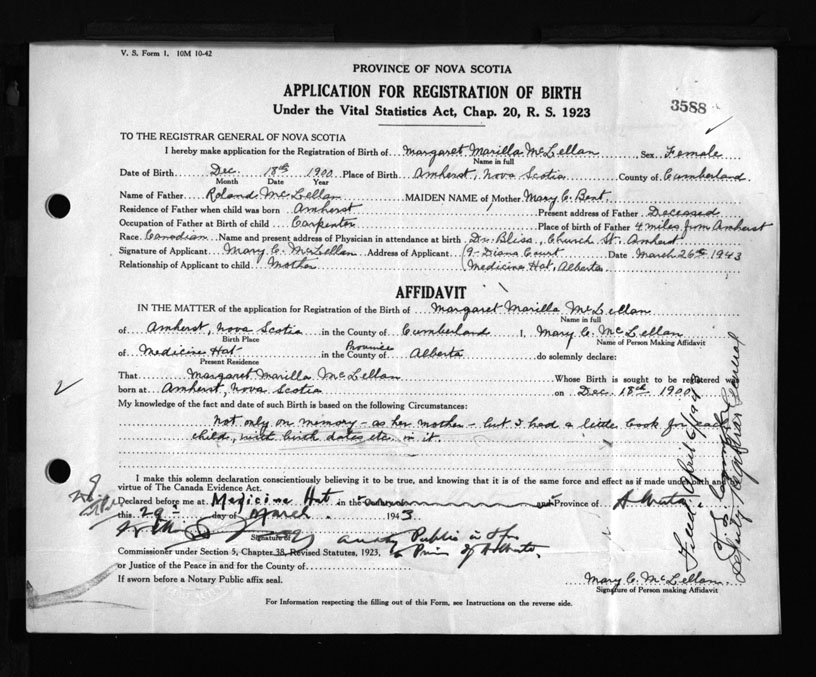 V. S. Form 1. 10M 10-42
PROVINCE OF NOVA SCOTIA
APPLICATION FOR REGISTRATION OF BIRTH
Under the Vital Statistics Act, Chap. 20, R. S. 1923
3588
TO THE REGISTRAR GENERAL OF NOVA SCOTIA
I hereby make application for the Registration of Birth of Margaret Marilla McLellan Sex Female
Name in full
Date of Birth Dec. 18th 1900 Place of Birth Amherst, Nova Scotia County of Cumberland
Month Date Year
Name of Father Roland McLellan MAIDEN NAME of Mother Mary C. Bent.
Residence of Father when child was born Amherst Present address of Father Deceased
Occupation of Father at Birth of child Carpenter Place of birth of Father 4 miles from Amherst
Race Canadian Name and present address of Physician in attendance at birth Dr. Bliss, Church St. Amherst
Signature of Applicant Mary C. McLellan Address of Applicant 9-Diana Court Date March 26th 1943
Relationship of Applicant to child Mother Medicine Hat, Alberta
AFFIDAVIT
IN THE MATTER of the application for Registration of the Birth of Margaret Marilla McLellan
Name in full
of Amherst, Nova Scotia in the County of Cumberland I, Mary C. McLellan
Birth Place Name of Person Making Affidavit
of Medicine Hat in the County of Province Alberta do solemnly declare:
Present Residence
That Margaret Marilla McLellan Whose Birth is sought to be registered was
born at Amherst, Nova Scotia on Dec. 18th 1900
My knowledge of the fact and date of such Birth is based on the following Circumstances:
Not only on memory - as her mother - but I had a little book for each
child, with birth dates etc. in it.
I make this solemn declaration conscientiously believing it to be true, and knowing that it is of the same force and effect as if made under oath and
virtue of The Canada Evidence Act.
Declared before me at Medicine Hat in the and Province of Alberta
this 29 day of March 1943.
Signature of Notary Public in & for
Commissioner under Section 5, Chapter 38, Revised Statutes, 1923, Prov. of Alberta.
or Justice of the Peace in and for the County of
If sworn before a Notary Public affix seal.
Mary C. McLellan
Signature of Person making Affidavit
For Information respecting the filling out of this Form, see Instructions on the reverse side.
Filed April 6/1943
Deputy Registrar General